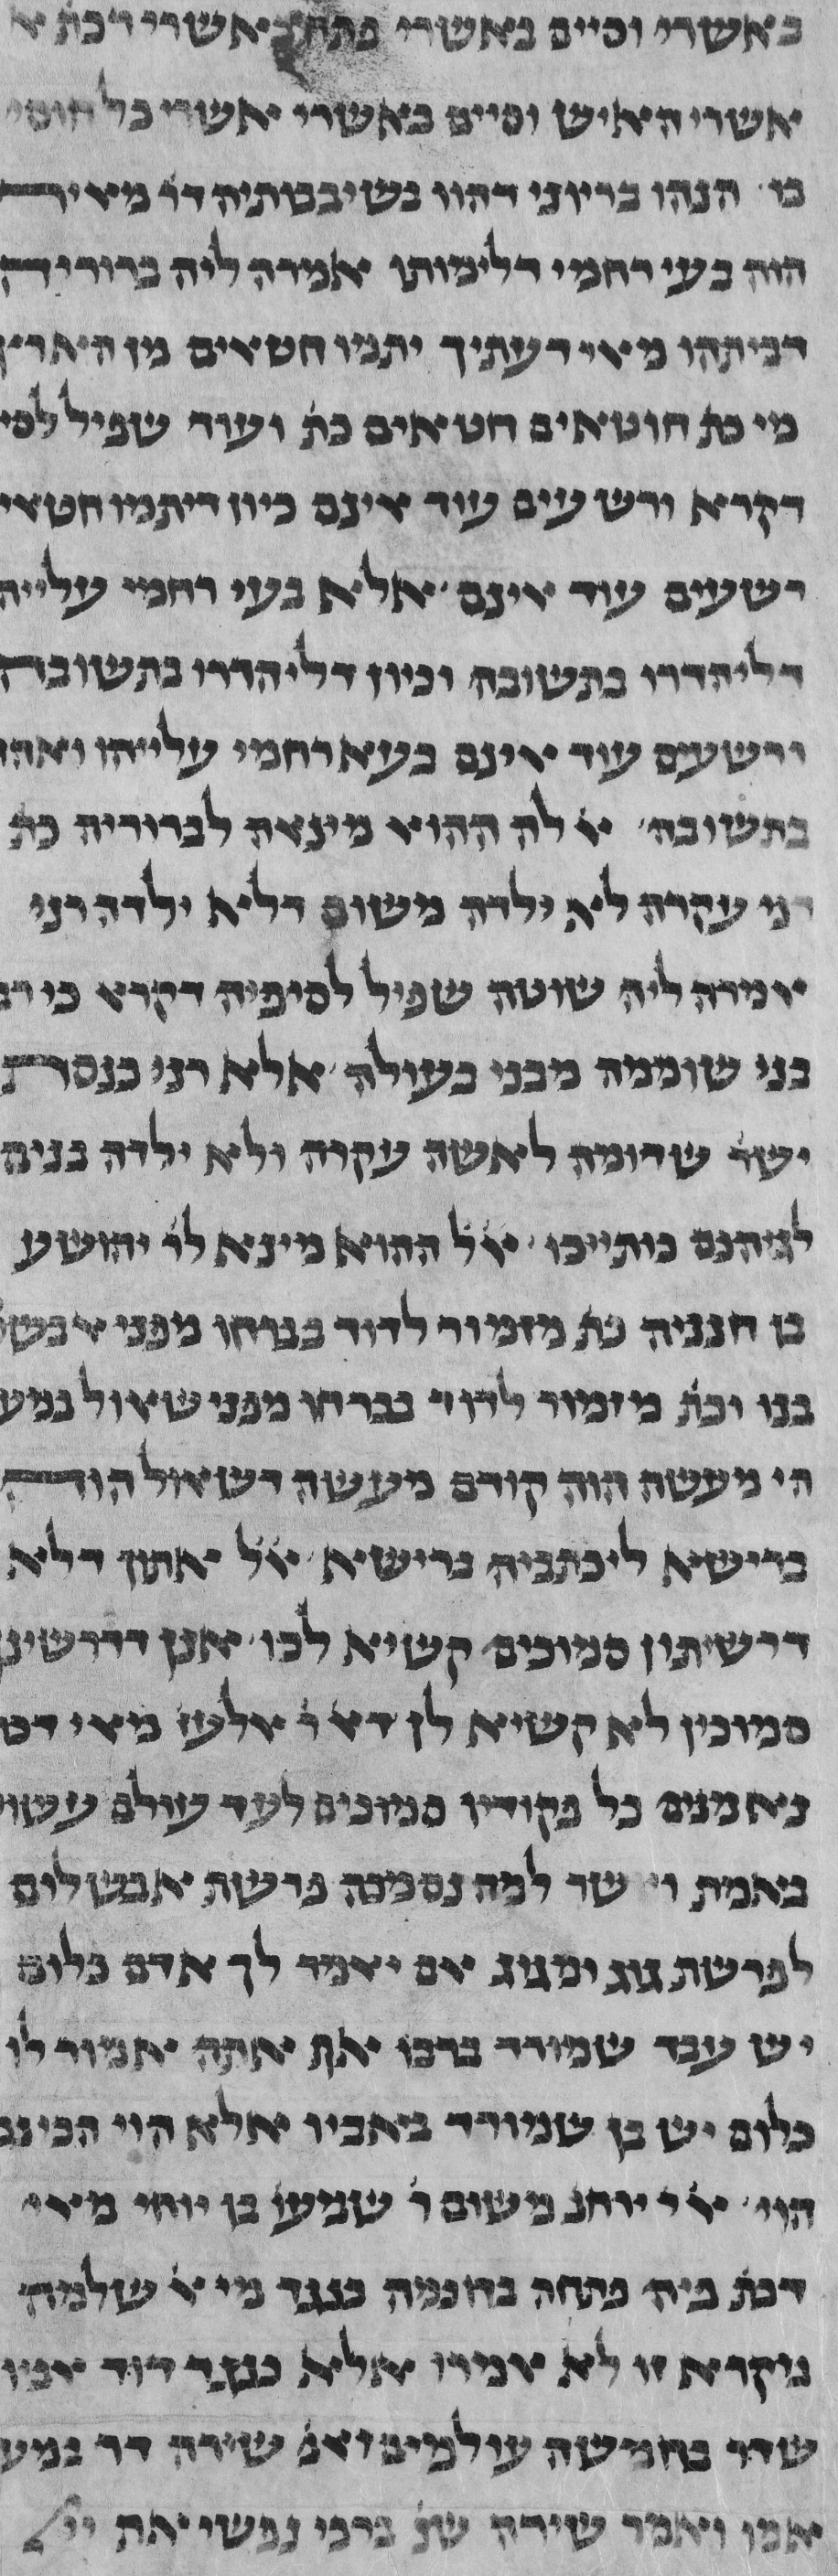 באשרי וסיים באשרי פתח באשרי דכת א
אשרי האיש וסיים באשרי אשרי כל חוסי
בו הנהו בריוני דהוו בשיבבותיה דר׳ מאיר
הוה בעי רחמי דלימותו אמרה ליה ברוריה
דביתהו מאי דעתיך יתמו חטאים מן הארץ
מי כת חוטאים חטאים כת ועוד שפיל לסי
דקרא ורשעים עוד אינם כיון דיתמו חטאי
רשעים עוד אינם אלא בעי רחמי עלייה
דליהדרו בתשובה וכיון דליהדרו בתשובה
ורשעים עוד אינם בעא רחמי עלייהו ואהד
בתשובה א׳ לה ההוא מינאה לברוריה כת
רני עקרה לא ילדה משום דלא ילדה רני
אמרה ליה שוטה שפיל לסיפיה דקרא כי רב
בני שוממה מבני בעולה אלא רני כנסת
ישר׳ שדומה לאשה עקרה ולא ילדה בנים
לגיהנם כותייכו א״ל ההוא מינא לר׳ יהושע
בן חנניה כת מזמור לדוד בברחו מפני אבש
בנו וכת מזמור לדוד בברחו מפני שאול במע
הי מעשה הוה קודם מעשה דשאול הוה
ברישא ליכתביה ברישא א״ל אתון דלא
דרשיתון סמוכים קשיא לכו אנן דדרשינ
סמוכין לא קשיא לן דא״ר אלעז׳ מאי דכ
נאמנים כל פקודיו סמוכים לעד עולם עשו
באמת וישר למה נסמכה פרשת אבשלום
לפרשת גוג ומגוג אם יאמר לך אדם כלום
יש עבד שמורד ברבו אף אתה אמור לו
כלום יש בן שמורד באביו אלא הוי הכי נמ
הוי א״ר יוחנ׳ משום ר׳ שמעון בן יוחי מאי
דכת פיה פתחה בחכמה כנגד מי א׳ שלמה
מקרא זו לא אמרו אלא כנגד דוד אביו
שדר בחמשה עולמים ואמ׳ שירה דר במעי
אמו ואמר שירה שנ׳ ברכי נפשי את יי׳